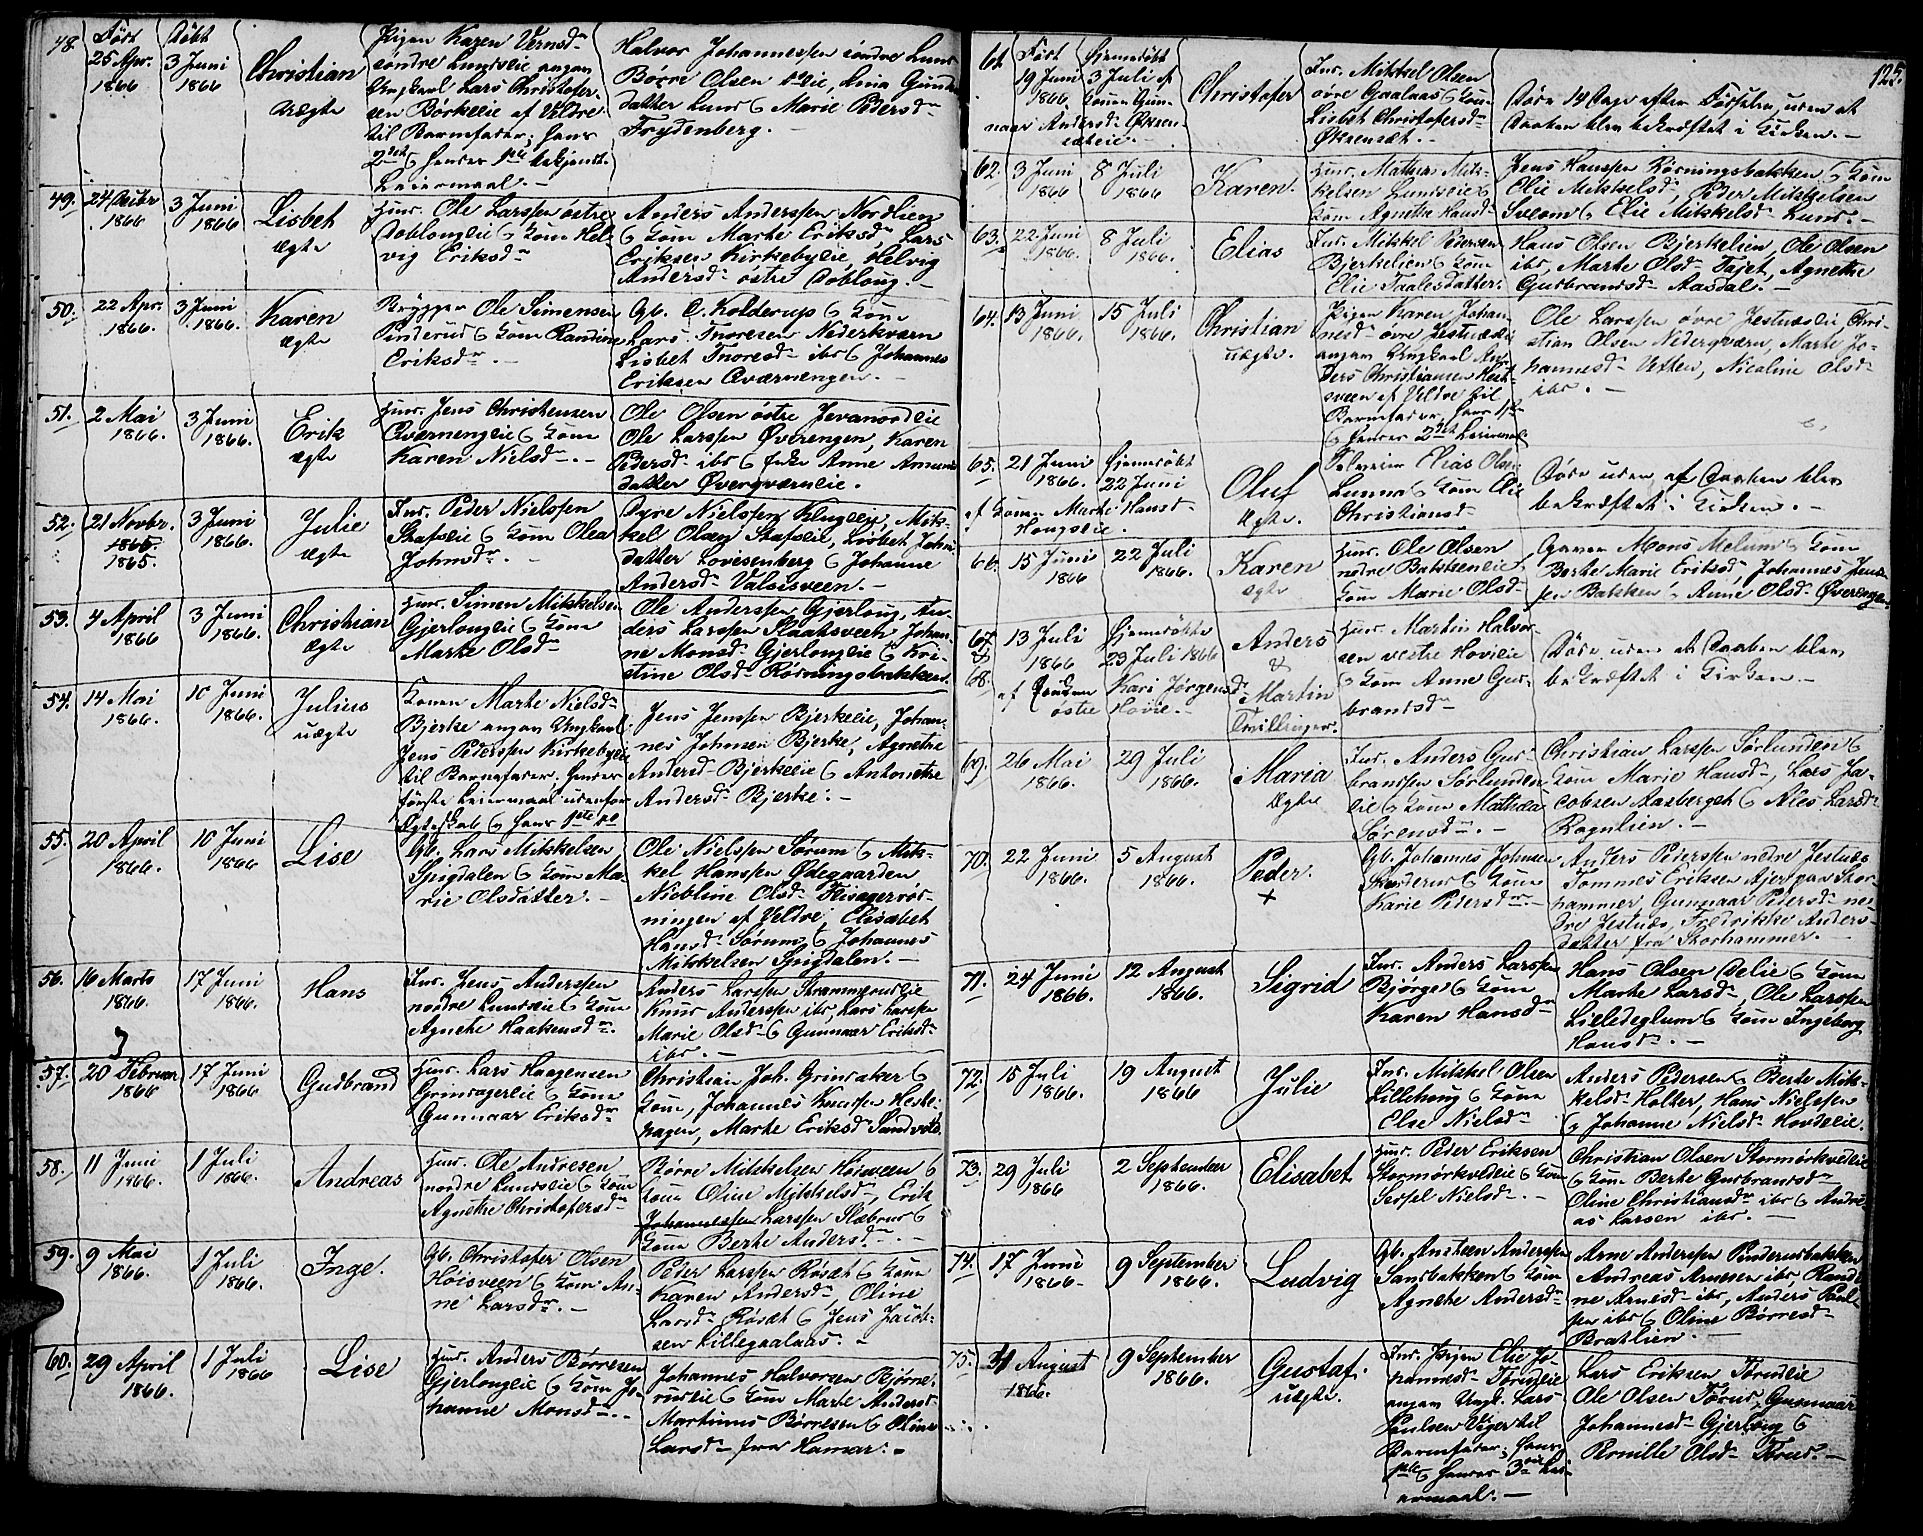 48. Født Døbt
25 Apr. 1866
3 Juni 1866
Christian
uægte
Pigen Karen Bernsd
søndre Lundslie angav
Ungkarl Lars Christofer-
sen Børkelie af Veldre
til Barnefader; hans
2det og hendes 1ste bekjendt.
Leiermaal. –
Halvor Johannessen søndre Lund
Børre Olsen
datter Lund og Marie Pedersd
Frydenberg. –
49.
1866
3 Juni 1866
Lisbet
ægte
Huus. Ole Larssen østre
Dobloug­lie og Kone Hel-
vig Eriksd
Anders Anderssen Nordlien
og Kone Marte Eriksd, Lars
Eriksen Kirkebylie, Helvig
Andersd østre Dobloug. –
50. 22 Apr. 1866.
3 Juni 1866.
Karen
ægte
Brygger Ole Simensen
Pinderud og Kone Randine
Eriksd. –
Gb. C. Kolderup og Kone
Lars Thoresen Nederkværn
Lisbet Thoresd ibd og Johannes
Eriksen Qværnengen. –
51. 2 Mai 1866.
3 Juni 1866.
Erik
ægte
Huus. Jens Christensen
Qværnenglie og Kone
Karen Nielsd. –
Ole Olsen østre Jevanordlie
Ole Larssen Øverengen, Karen
Pedersd ibd og Enke Anne Amund
datter Øverqværnlie.
52. 21 Novbr. 1865.
1865.
3 Juni 1866.
Julie
ægte
Ind. Peder Nielssen
Stafslie og Kone Olea
Johnsd. –
Syver Nielssen Kluglie, Mik-
kel Olsen Stafslie, Lisbet Johns
datter Lovisenberg og Johanne
Andersd Valsisveen. –
53. 4 April 1866
3 Juni 1866.
Christian
ægte
Huus. Simen Mikkelsen
Gjerlouglie og Kone
Marte Olsd
Ole Anderssen Gjerloug, An-
ders Larssen Slaatsveen, Johan-
ne Monsd Gjerlouglie og Kri-
stine Olsd Rørningsbakken.
54. 14 Mai 1866.
10 Juni 1866.
Julius
uægte
Konen Marte Nielsd
Bjerke angav Ungkarl
Jens Pederssen Kirkebylie
til Barnefader; hendes
første Leiermaal udenfor
Ægteskab og hans 1ste
Jens Jenssen Bjerkelie, Johan-
nes Johnsen Bjerke, Agnethe
Andersd Bjerkelie og Antonette
Andersd Bjerke. –
55. 20 April 1866.
10 Juni 1866
Lise
Gb. Lars Mikkelsen
Spigdalen og Kone Ma-
rie Olsdatter. –
Ole Nielssen Sørum og Mik-
kel Hanssen Ødegaarden
Nicoline Olsd Fiisagerrør-
ningen af Veldre, Elisabet
Hansd Sørum og Johannes
Mikkelsen Spigdalen. –
56. 16 Marts 1866.
17 Juni 1866.
Hans
Ind. Jens Anderssen
nordre Lundslie og Kone
Agnethe Haakensd.
Anders Larssen Strammerudlie
Knud Anderssen ibd, Lars Larssen
Marie Olsd og Gunnaar Eriksd
ibd. –
57. 20 Februar 1866
17 Juni 1866
Gudbrand
Huus. Lars Haagensen
Grimsagerlie og Kone
Gunnaar Eriksd
Christian Joh. Grimsaker og
Kone, Johannes Knudsen Heste-
hagen, Marte Eriksd Sandvold.
58. 11 Juni 1866.
1 Juli 1866.
Andreas
Huus. Ole Andresen
nordre Lundslie og Kone
Agnethe Christofersd
Børre Mikkelsen Høisveen og
Kone Oline Mikkelsd, Erik
Johannessen Larssen Slæbrud og
Kone Berte Andersd. –
59. 9 Mai 1866.
1 Juli 1866.
Inge.
Gb. Christofer Olsen
Høisveen og Kone An-
ne Larsd. –
Peder Larssen Rosæt og Kone
Karen Andersd, Oline
Larsd Rosæt og Jens Jacob-
sen Lillegaalaas. –
60. 29 April 1866.
1 Juli 1866
Lise
Huus. Anders Børresen
Gjerlouglie og Kone Jo-
hanne Monsd. –
Johannes Halvorsen Bjørne-
rudlie og Kone Marte Andersd
Martinus Børresen og Oline
Larsd fra Hamar. –
125.
61. Født
19 Juni 1866.
Hjemmedøbt
3 Juli af
Konen Gun-
naar Andersd Øksen-
sætlie.
Christofer
Ind. Mikkel Olsen
øvre Gaalaas og Kone
Lisbet Christofersd
Øksensæt. –
Døde 14 Dage efter Fødselen, uden at
Daaben blev bekræftet i Kirken. –
62. 3 Juni 1866
8 Juli 1866
Karen.
Huus. Mathias Mik-
kelsen Lundslie og
Kone Agnethe Hansd
Jens Hanssen Rørningsbakken og Kone
Elie Mikkelsd, Peder Mikkelsen
Sveom og Elie Mikkelsd Lund. –
63. 22 Juni 1866.
8 Juli 1866.
Elias
Ind. Mikkel Pedersen
Bjerkelien og Kone
Elie Taalesdatter.
Hans Olsen Bjerkelien, Ole Olsen
ibd, Marte Olsd Tajet, Agnethe
Gudbrandsd Aasdal. –
64. 13 Juni 1866.
15 Juli 1866.
Christian
uægte.
Pigen Karen Johan-
nesd øvre Jestnæslie
angav Ungkarl An-
ders Christiansen Hest-
sveen af Veldre til
Barnefader, hans 1ste
og hendes 2det Leiermaal
Ole Larssen øvre Jestnæslie, Chri-
stian Olsen Nederqværn, Marte Jo-
hannesd Vetten, Nicoline Olsd
ibd. –
65. 21 Juni 1866.
Hjemmedøbt
22 Juni
af Konen Marte Hansd
Hougslie.
Oluf
Ægte.
Elias Olsen
Lunna og Kone Elie
Christiansd
Døde uden at Daaben blev
bekræftet i Kirken. –
66. 15 Juni 1866
22 Juli 1866.
Karen
ægte
Huus. Ole Olsen
nedre Bakkenlie og
Kone Marie Olsd
Mons Melum og Kone
Berte Marie Eriksd, Johannes Jens-
sen Bakken og Anne Olsd Øverengen
67. & 68.
13 Juli 1866
Hjemmedøbte
23 Juli 1866
af Kari Jørgensd
østre Hovie. –
Anders
&
Martin
Tvillinger.
Huus. Martin Halvor-
sen vestre Hovilie
og Kone Anne Gud-
brandsd
Døde uden at Daaben blev
bekræftet i Kirken. –
69. 26 Mai 1866.
29 Juli 1866.
Maria
Ægte
Ind. Anders Gud-
brandssen Sørlunden-
lie og Kone Mathea
Sørensd. –
Christian Larssen Sørlunden og
Kone Marie Hansd, Lars Ja-
cobsen Aasberget og Alis Larsd
Rognlien. –
70. 22 Juni 1866.
5 August 1866.
Peder.
+
Gb. Johannes Johnsen
Skinderud og Kone
Karie Pedersd.
Anders Pederssen nedre Jestnæs
Tommes Eriksen Ajer paa Stor-
hammer, Gunnaar Pedersd ne-
dre Jestnæs, Fredrikke Anders-
datter fra Storhammer. –
71. 24 Juni 1866.
12 August 1866.
Sigrid
Ind. Anders Larssen
Bjørge og Kone
Karen Hansd
Hans Olsen Delie og Kone
Marte Larsd, Ole Larssen
Lilledeglum og Kone Ingeborg
Hansd. –
72. 15 Juli 1866.
19 August 1866
Julie
Ind. Mikkel Olsen
Lillehoug og Kone
Else Nielsd
Anders Pedersen og Berte Mik-
kelsd Holter, Hans Nielssen
og Johanne Nielsd Hovdelie.
73. 29 Juli 1866
2 September 1866.
Elisabet
Huus. Peder Eriksen
Stormørkvedlie og Kone
Sessel Nielsd. –
Christian Olsen Stormørkvedlie
og Kone Berte Gudbrandsd
Oline Christiansd ibd og Andre-
as Larsen ibd. –
74. 17 Juni 1866.
9 September 1866.
Ludvig
Gb. Ansteen Anderssen
Sandbakken og Kone
Agnethe Andersd
Arne Anderssen Pinderudbakken
Andreas Arnesen ibd, Randi-
ne Arnesd ibd, Anders Paul-
sen ibd og Oline Børresd
Bratlien. –
75. 31 August
1865.
9 September 1866.
Gustaf.
uægte.
Ind. Pigen Elie Jo-
hannesd Torudlie
angav Ungk. Lars
Paulsen Viger til
Barnefader; hans
1ste og hendes 3die Lei-
ermaal. –
Lars Eriksen Torudlie
Ole Olsen Torud, Gunnaar
Johannesd Gjerloug og
Pernille Olsd Torud. –